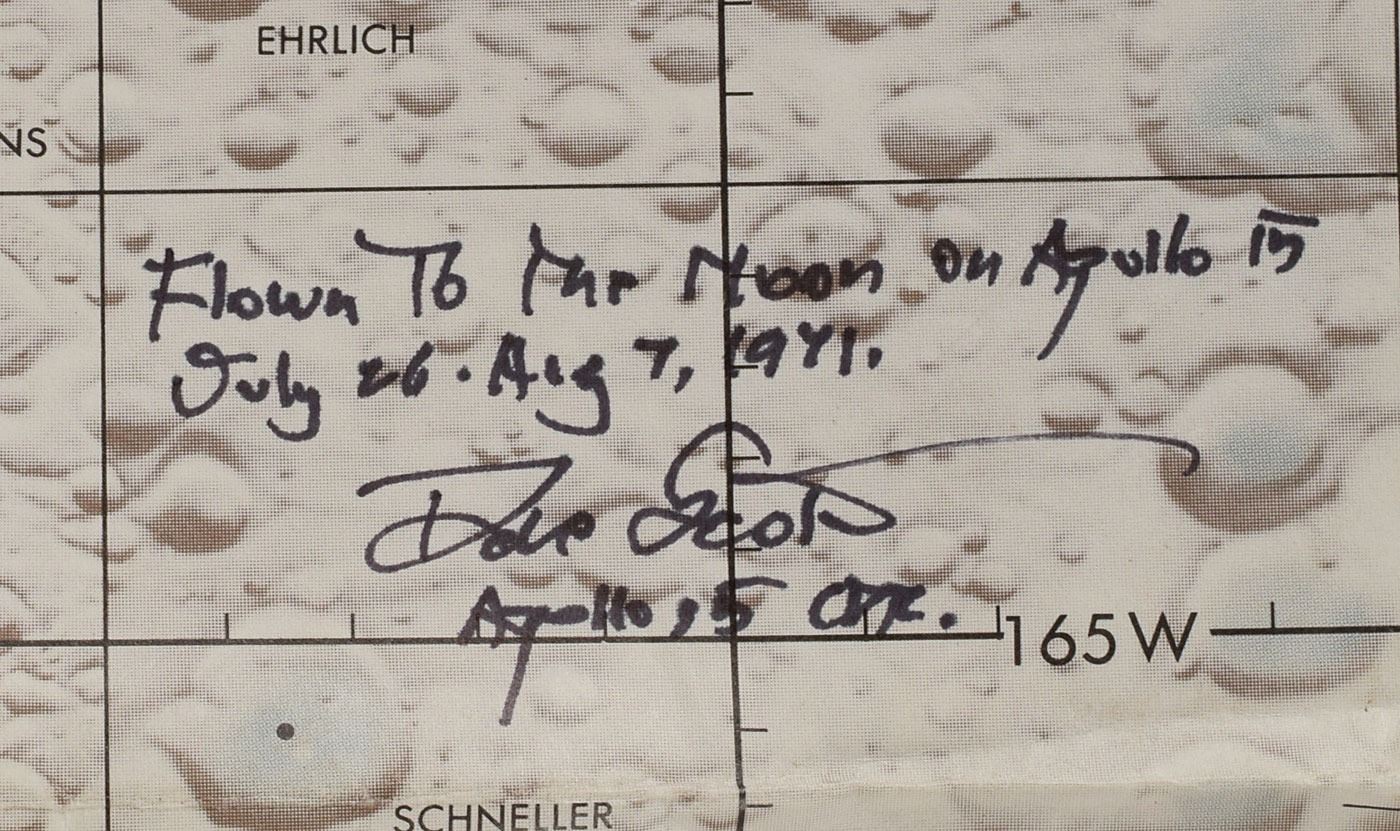 EHRLICH
NS
Flown To The Moon on Apollo 15
July 26 - Aug 7, 1971.
Dave Scott
Apollo 15 CDR.
165 W
SCHNELLER